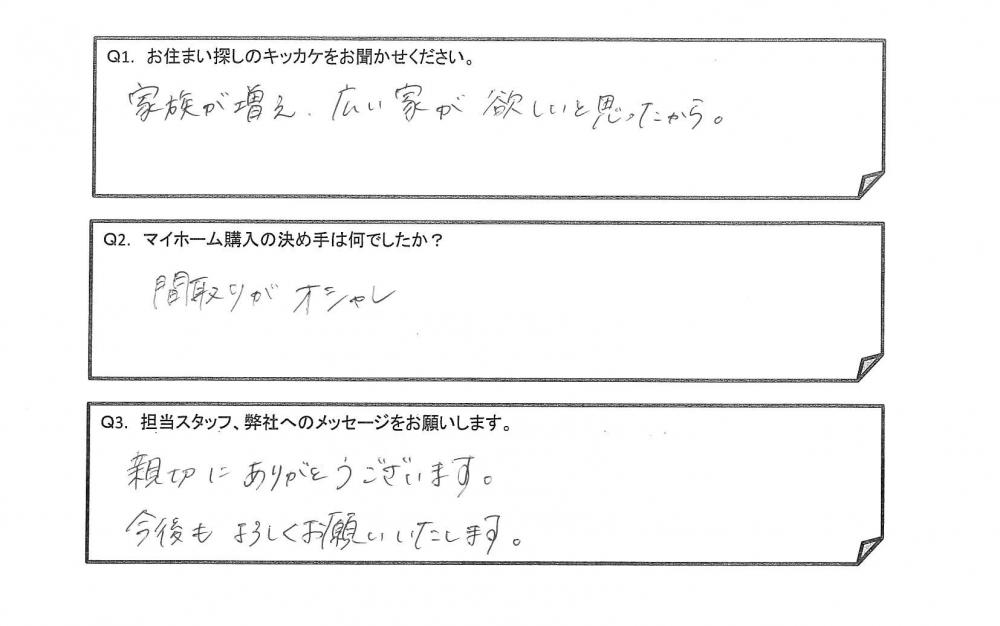 Q1. お住まい探しのキッカケをお聞かせください。
家族が増え、広い家が欲しいと思ったから。
Q2. マイホーム購入の決め手は何でしたか？
間取りがオシャレ
Q3. 担当スタッフ、弊社へのメッセージをお願いします。
親切にありがとうございます。
今後もよろしくお願いいたします。